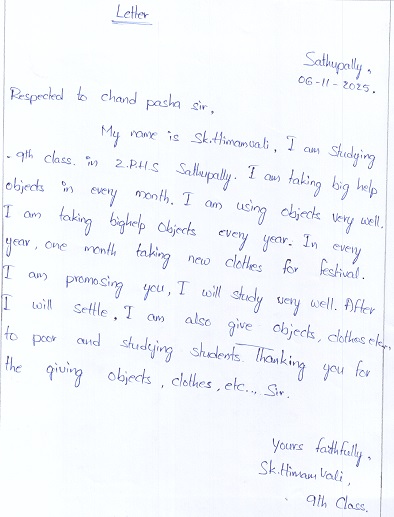 Letter
Sathupally,
06-11-2025.
Respected to chand pasha sir,
My name is Sk.Himamvali, I am studying
9th class. in Z.P.H.S Sathupally. I am taking big help
objects in every month. I am using objects very well.
I am taking bighelp objects every year. In every
year, one month taking new clothes for festival.
I am promosing you, I will study very well. After
I will settle, I am also give objects, clothes etc..
to poor and studying students. Thanking you for
the giving objects, clothes, etc... Sir.
Yours faithfully,
Sk.Himam Vali,
9th Class.